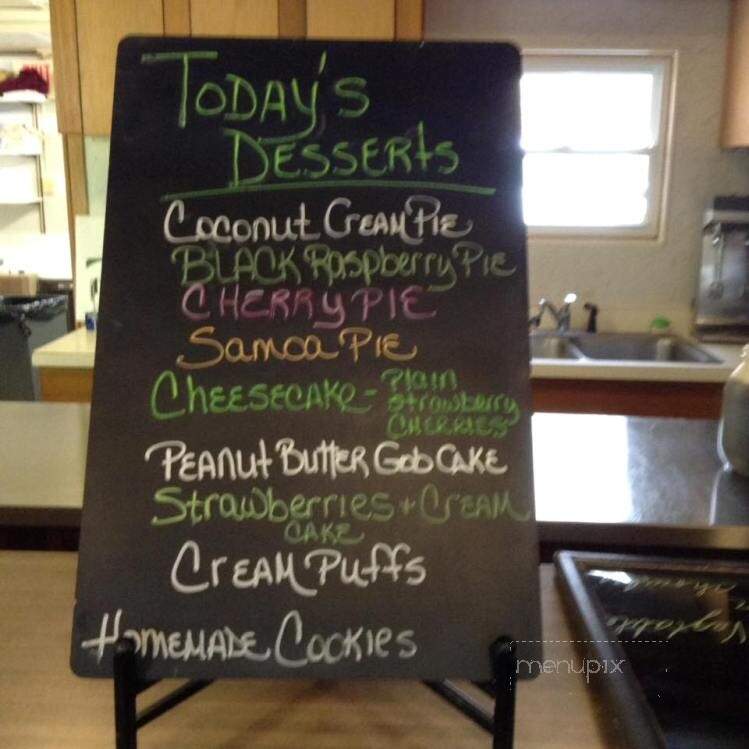 Today's
Desserts
Coconut Cream Pie
Black Raspberry Pie
Cherry Pie
Samoa Pie
Cheesecake - Plain
Strawberry
Cherries
Peanut Butter Gob Cake
Strawberries + Cream
Cake
Cream Puffs
Homemade Cookies
menupix
Vegetable